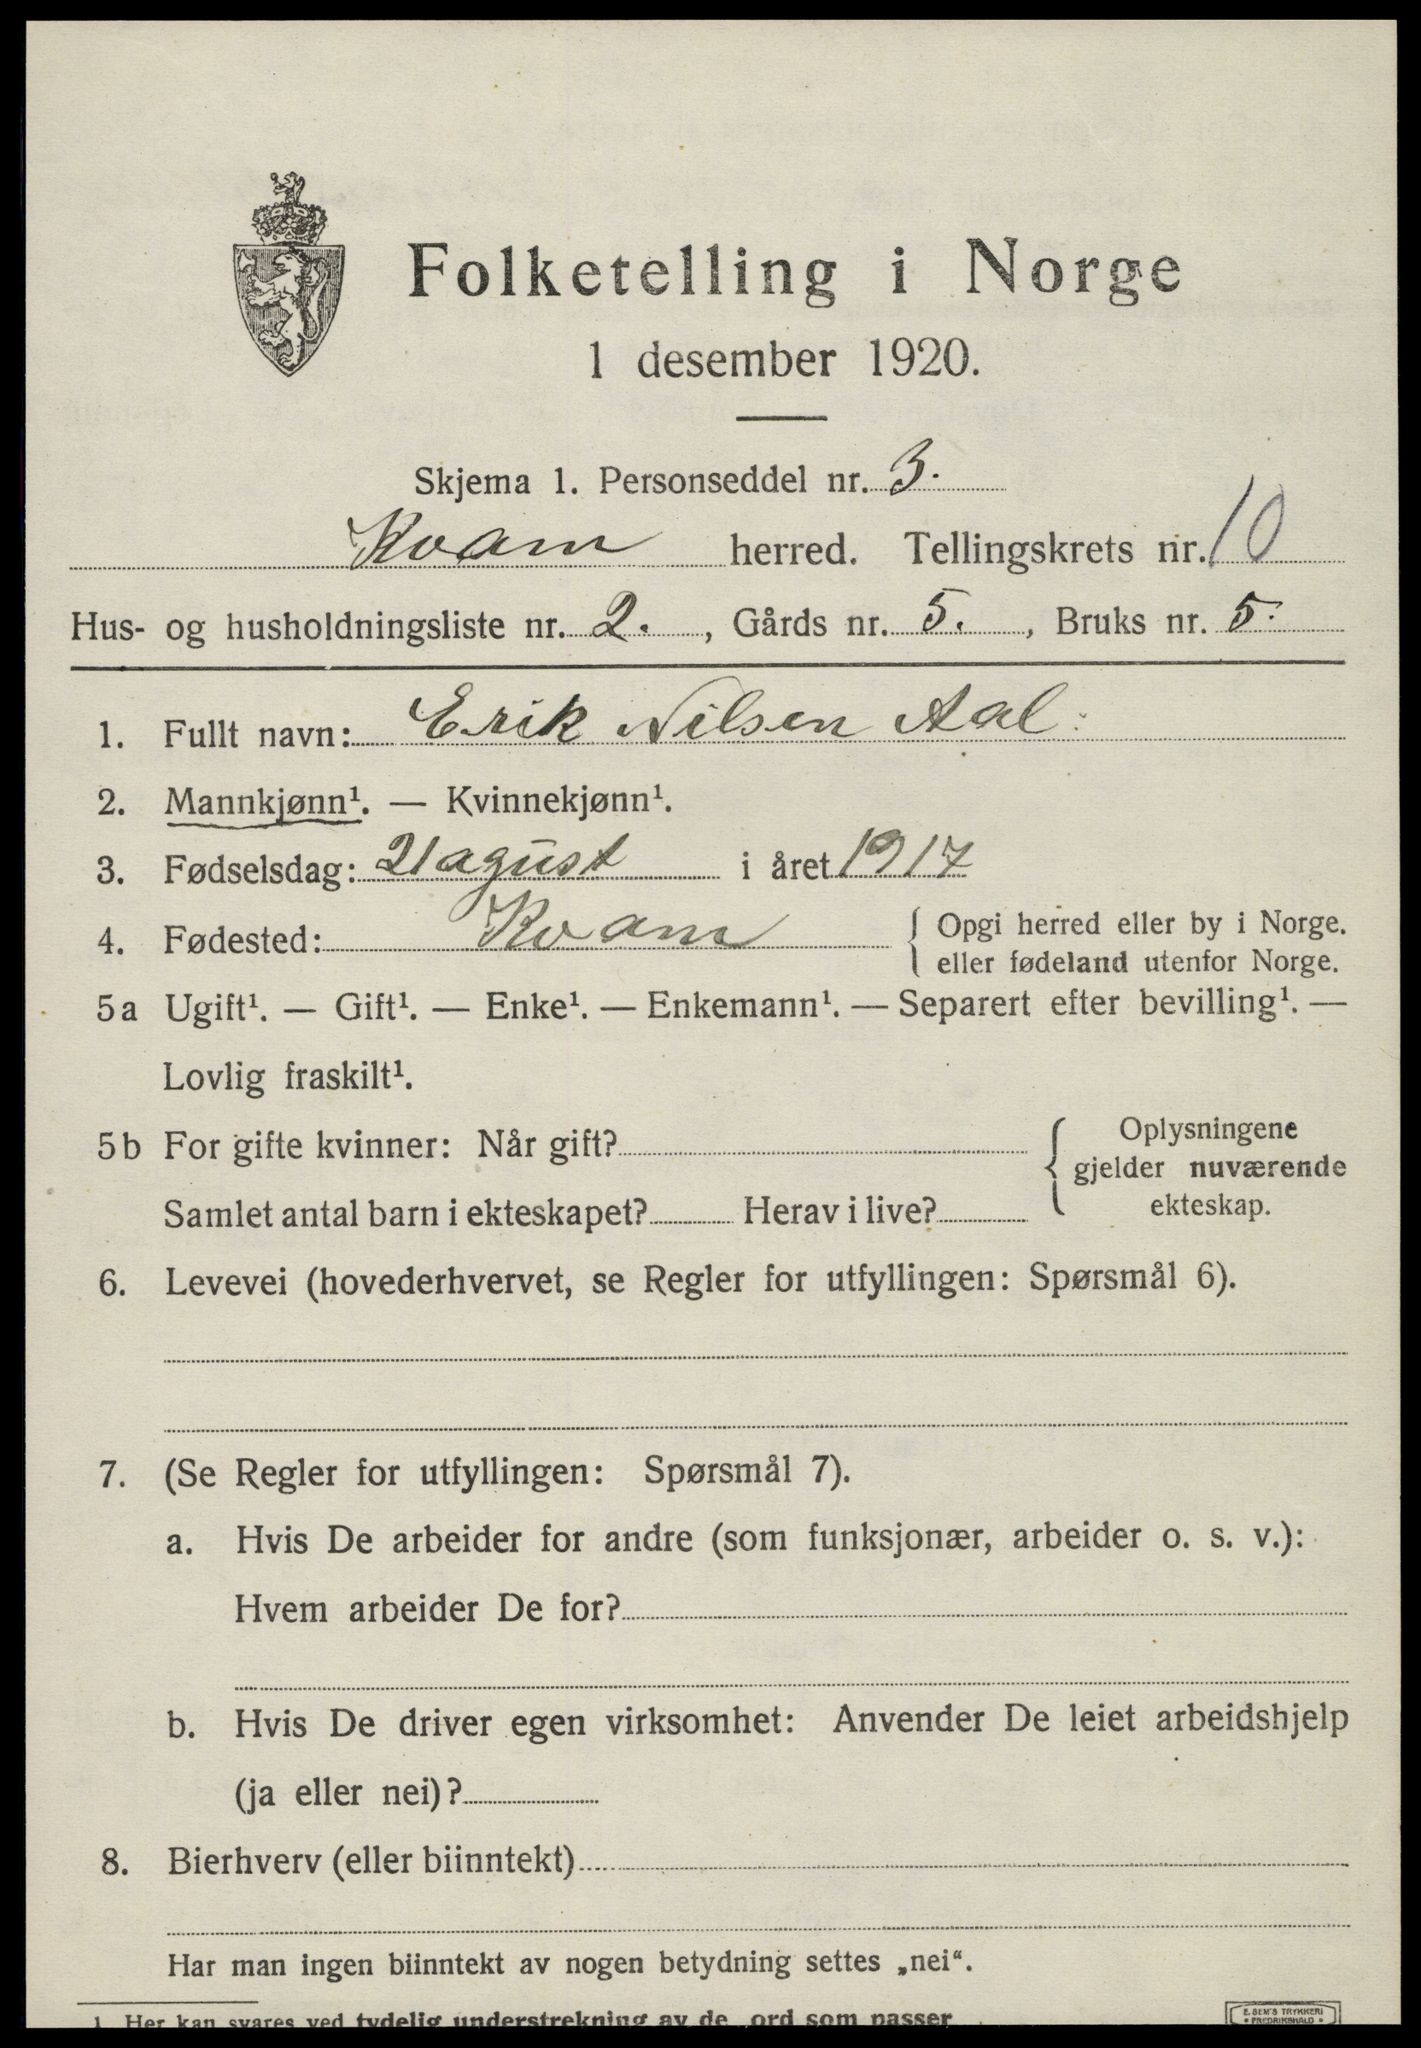 Folketelling i Norge
1 desember 1920.
Skjema 1. Personseddel nr. 3.
Kvam herred. Tellingskrets nr. 10
Hus- og husholdningsliste nr. 2. , Gårds nr. 5. , Bruks nr. 5.
1. Fullt navn: Erik Nilsen Aal.
2. Mannkjønn¹. — Kvinnekjønn¹.
3. Fødselsdag: 21 agust i året 1917
4. Fødested: Kvam { Opgi herred eller by i Norge.
eller fødeland utenfor Norge.
5a Ugift¹. — Gift¹. — Enke¹. — Enkemann¹. — Separert efter bevilling¹. —
Lovlig fraskilt¹.
5b For gifte kvinner: Når gift? { Oplysningene
gjelder nuværende
Samlet antal barn i ekteskapet? Herav i live? ekteskap.
6. Levevei (hovederhvervet, se Regler for utfyllingen: Spørsmål 6).
7. (Se Regler for utfyllingen: Spørsmål 7).
a. Hvis De arbeider for andre (som funksjonær, arbeider o. s. v.):
Hvem arbeider De for?
b. Hvis De driver egen virksomhet: Anvender De leiet arbeidshjelp
(ja eller nei)?
8. Bierhverv (eller biinntekt)
Har man ingen biinntekt av nogen betydning settes „nei“.
1 Her kan svares ved tydelig understrekning av de ord som passer
E. SEM'S TRYKKERI
• FREDRIKSHALD •